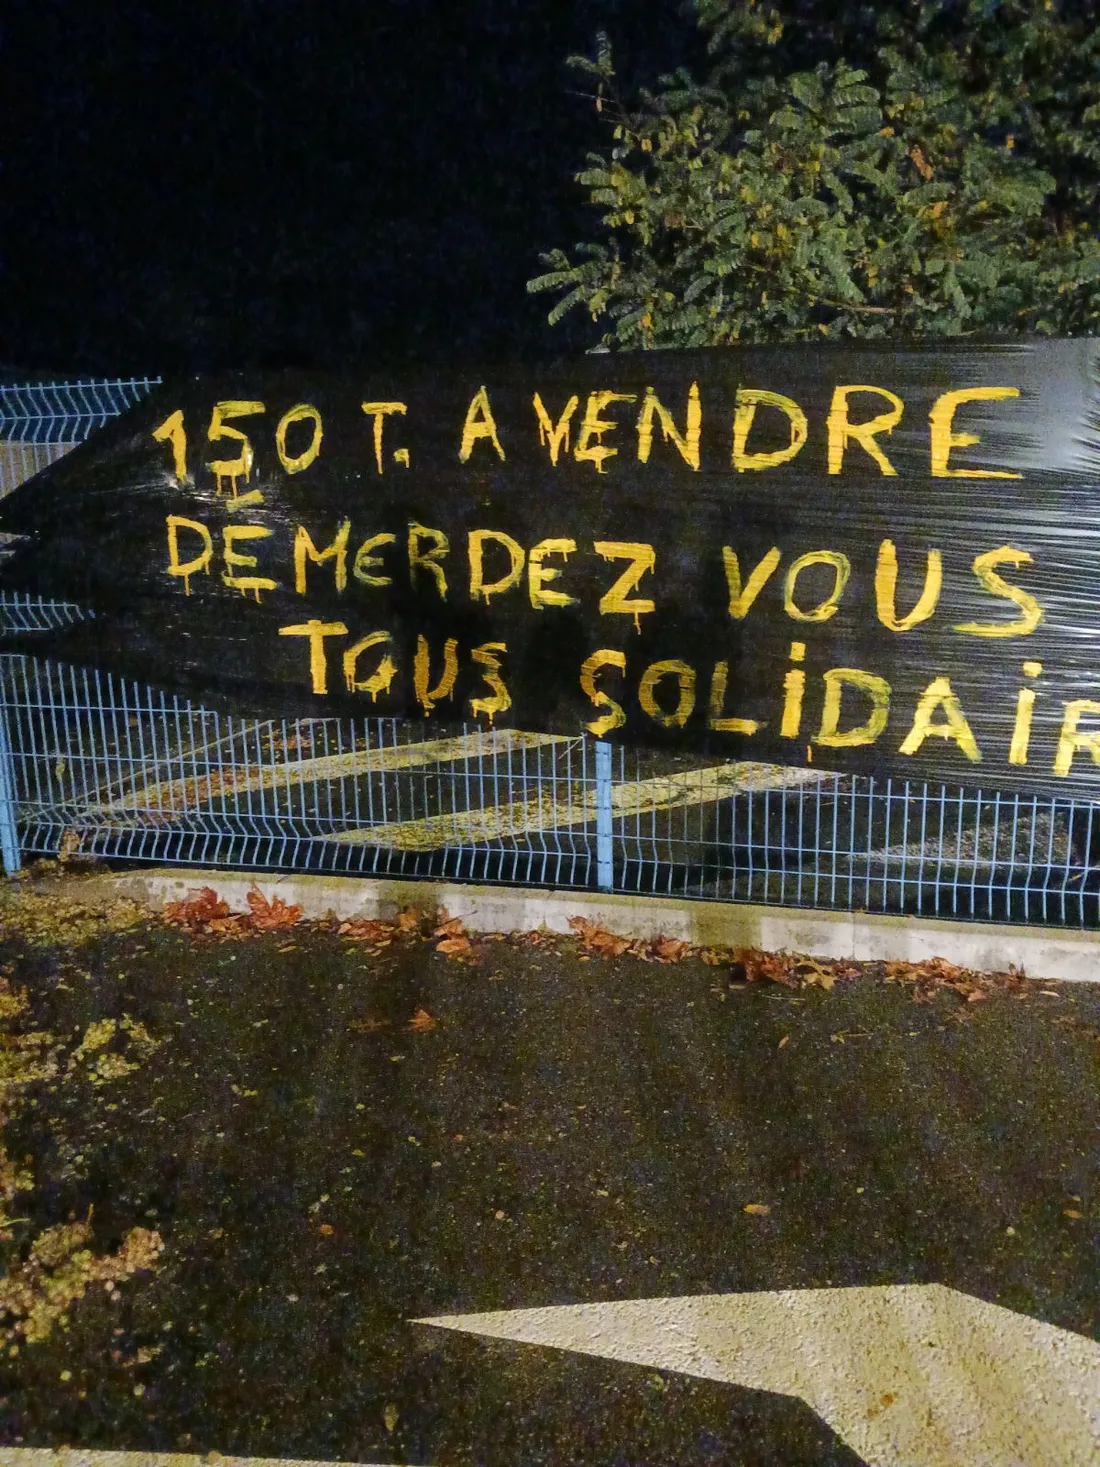 150 T. A VENDRE
DÉMERDEZ VOUS
TOUS SOLIDAIR